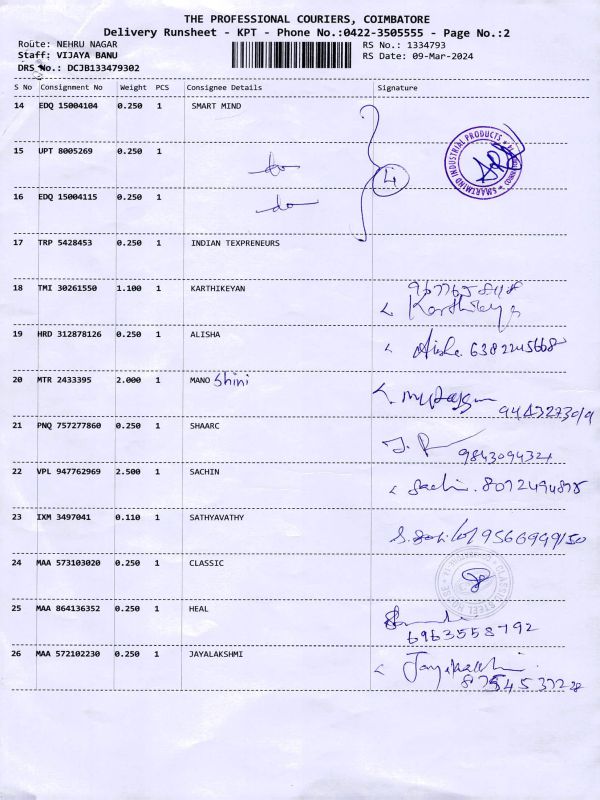 THE PROFESSIONAL COURIERS, COIMBATORE
Delivery Runsheet - KPT - Phone No.:0422-3505555 - Page No.:2
Route: NEHRU NAGAR RS No.: 1334793
Staff: VIJAYA BANU RS Date: 09-Mar-2024
DRS No.: DCJB133479302
S No Consignment No Weight PCS Consignee Details Signature
14 EDQ 15004104 0.250 1 SMART MIND
SMARTMIND INDUSTRIAL PRODUCTS
15 UPT 8005269 0.250 1 do
4
16 EDQ 15004115 0.250 1 do
17 TRP 5428453 0.250 1 INDIAN TEXPRENEURS
18 TMI 30261550 1.100 1 KARTHIKEYAN
Karthikeya
19 HRD 312878126 0.250 1 ALISHA Alisha 6382245668
20 MTR 2433395 2.000 1 MANO Shini
21 PNQ 757277860 0.250 1 SHAARC
9843094324
22 VPL 947762969 2.500 1 SACHIN Sachin
23 IXM 3497041 0.110 1 SATHYAVATHY
24 MAA 573103020 0.250 1 CLASSIC
CLASSIC STEEL
25 MAA 864136352 0.250 1 HEAL
6963558792
26 MAA 572102230 0.250 1 JAYALAKSHMI Jayalakshmi